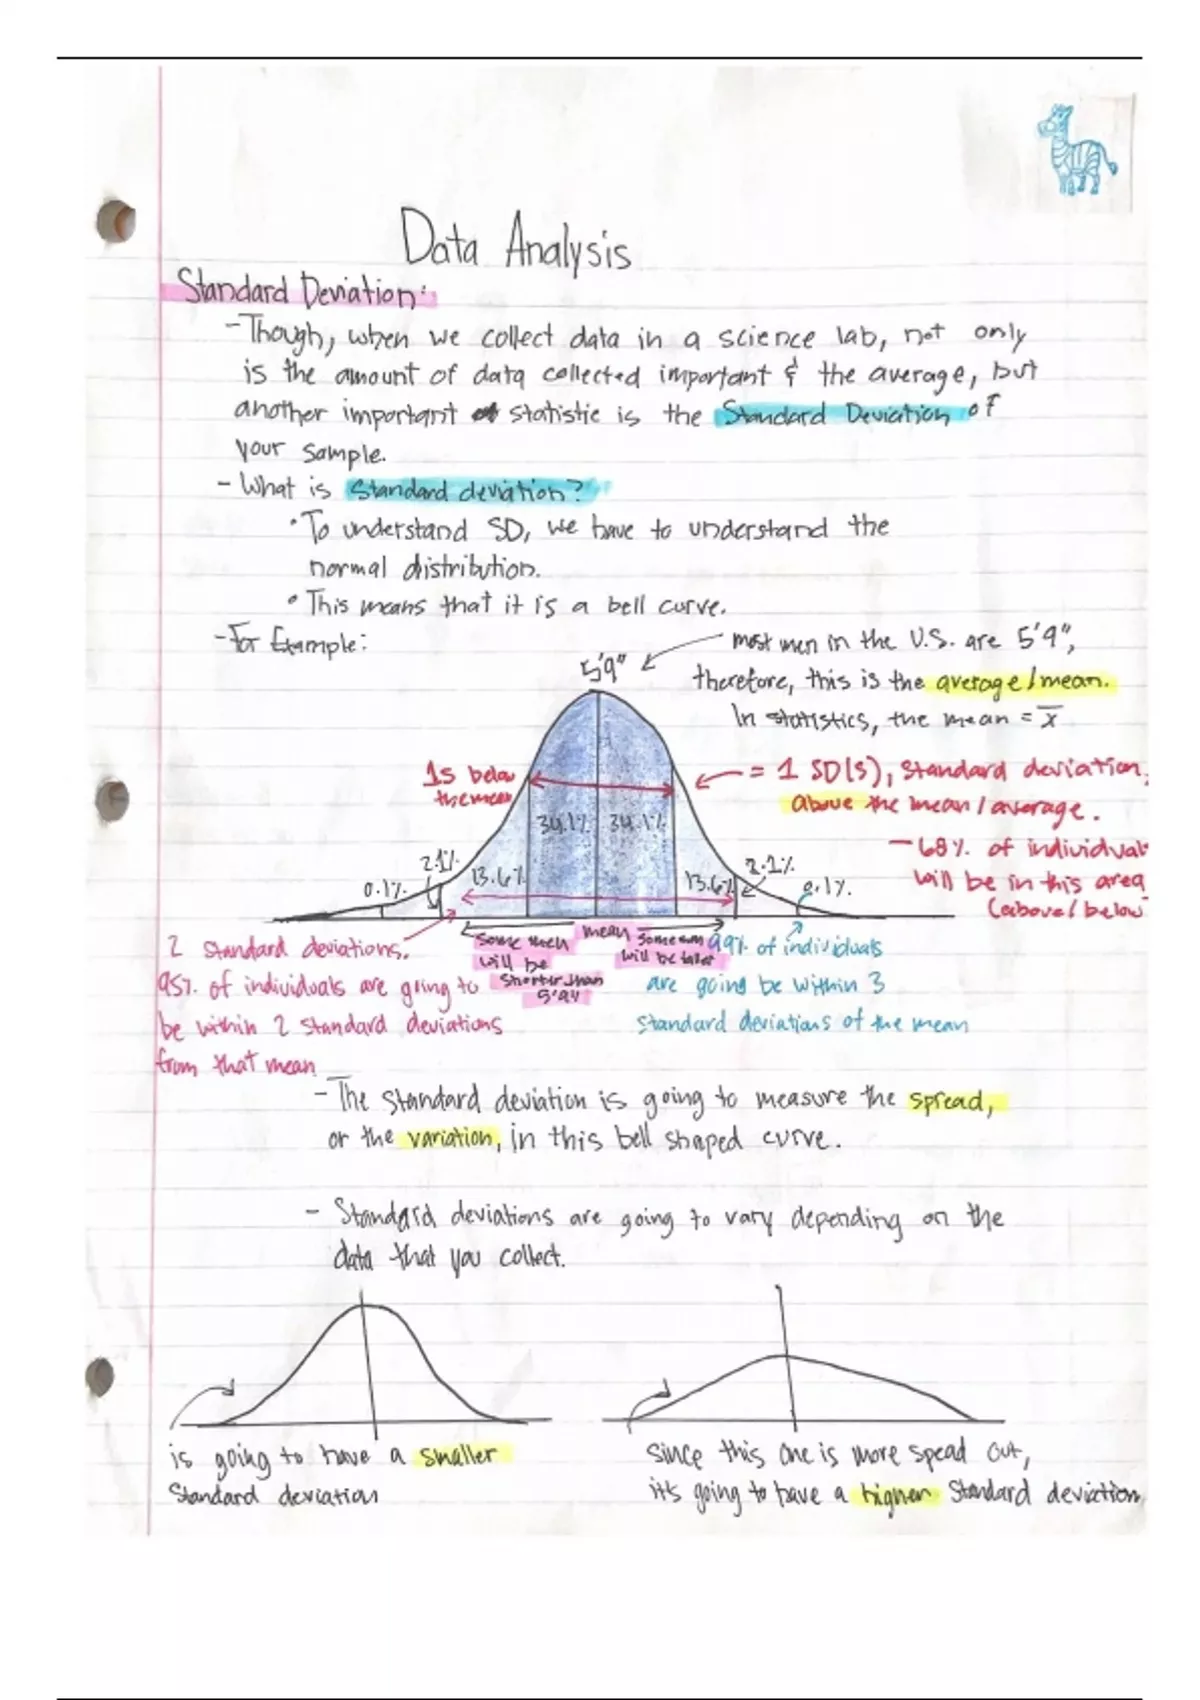 Data Analysis
Standard Deviation:
- Though, when we collect data in a science lab, not only
is the amount of data collected important & the average, but
another important statistic is the Standard Deviation of
your sample.
- What is standard deviation?
• To understand SD, we have to understand the
normal distribution.
• This means that it is a bell curve.
- For Example:
5'9"
most men in the U.S. are 5'9",
therefore, this is the average/mean.
In statistics, the mean = x̅
1s below
the mean
= 1 SD(s), standard deviation,
above the mean/average.
- 68% of individual
will be in this area
(above/below
34.1% 34.1%
0.1% 2.1% 13.6% 13.6% 2.1% 0.1%
2 standard deviations.
95% of individuals are going to
be within 2 standard deviations
from that mean
some men
will be
shorter than
5'9"
mean
some men
will be taller
99% of individuals
are going be within 3
standard deviations of the mean
- The standard deviation is going to measure the spread,
or the variation, in this bell shaped curve.
- Standard deviations are going to vary depending on the
data that you collect.
is going to have a smaller
Standard deviation
since this one is more spead out,
it's going to have a higher Standard deviction